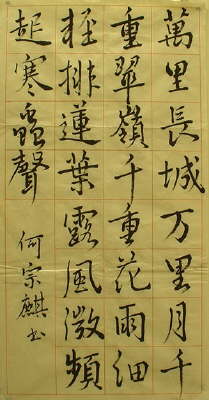 萬里長城万里月千
重翠嶺千重花雨細
輕排蓮葉露風微頻
起寒蟲聲
何宗麒书